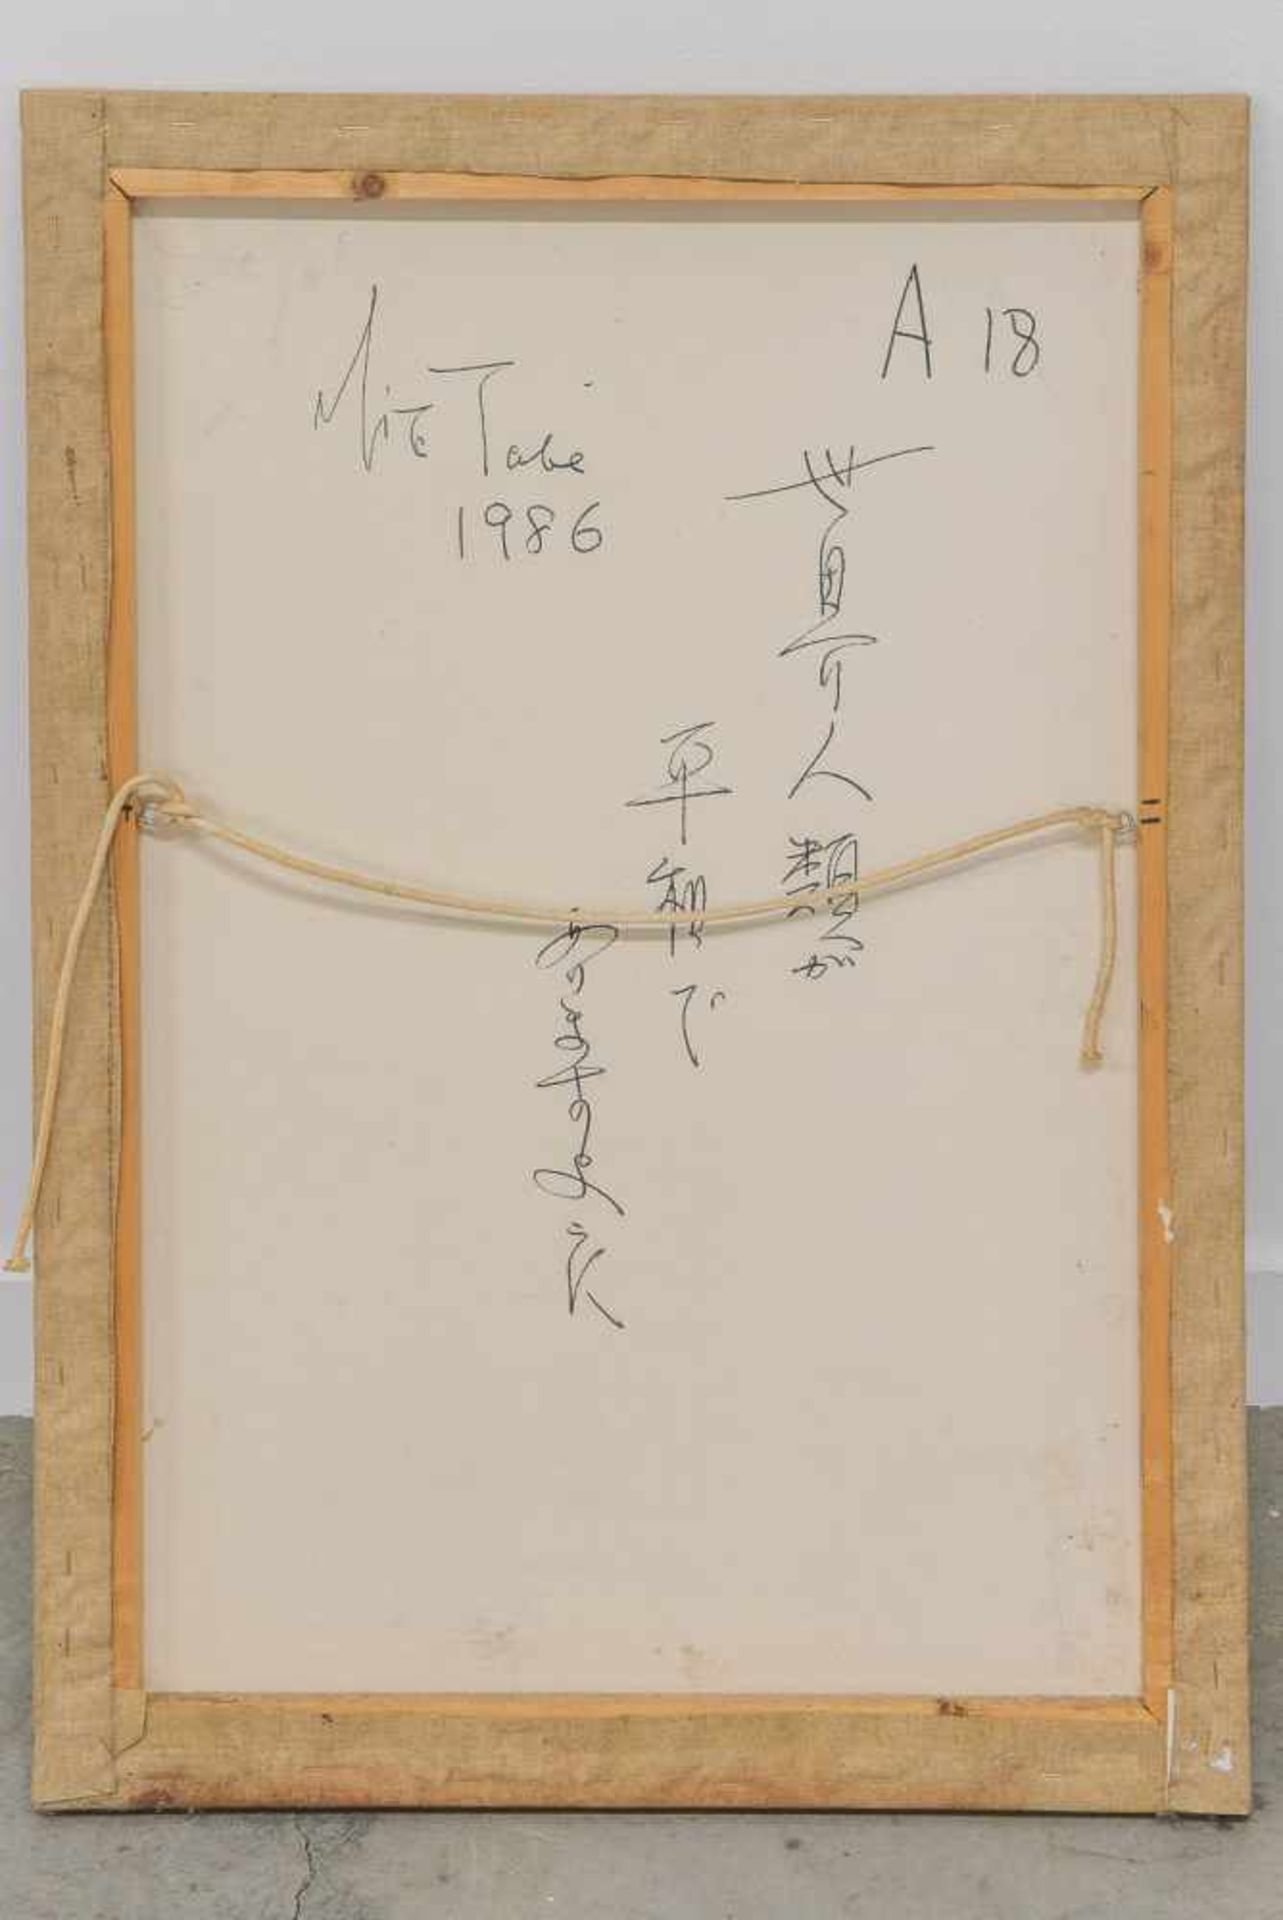 A 18
Mie Tabe
1986
世界人類が
平和で
ありますように